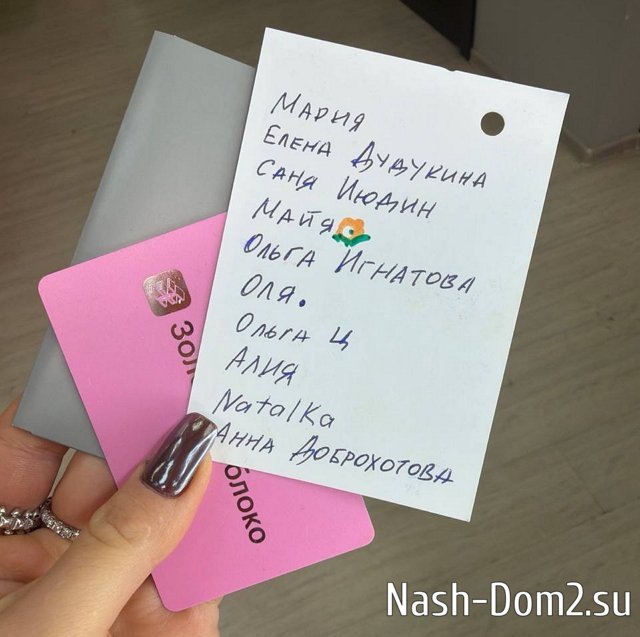 Мария
Елена Дудукина
Саня Июдин
Майя
Ольга Игнатова
Оля.
Ольга Ц
Алия
Natalka
Анна Доброхотова
Nash-Dom2.su